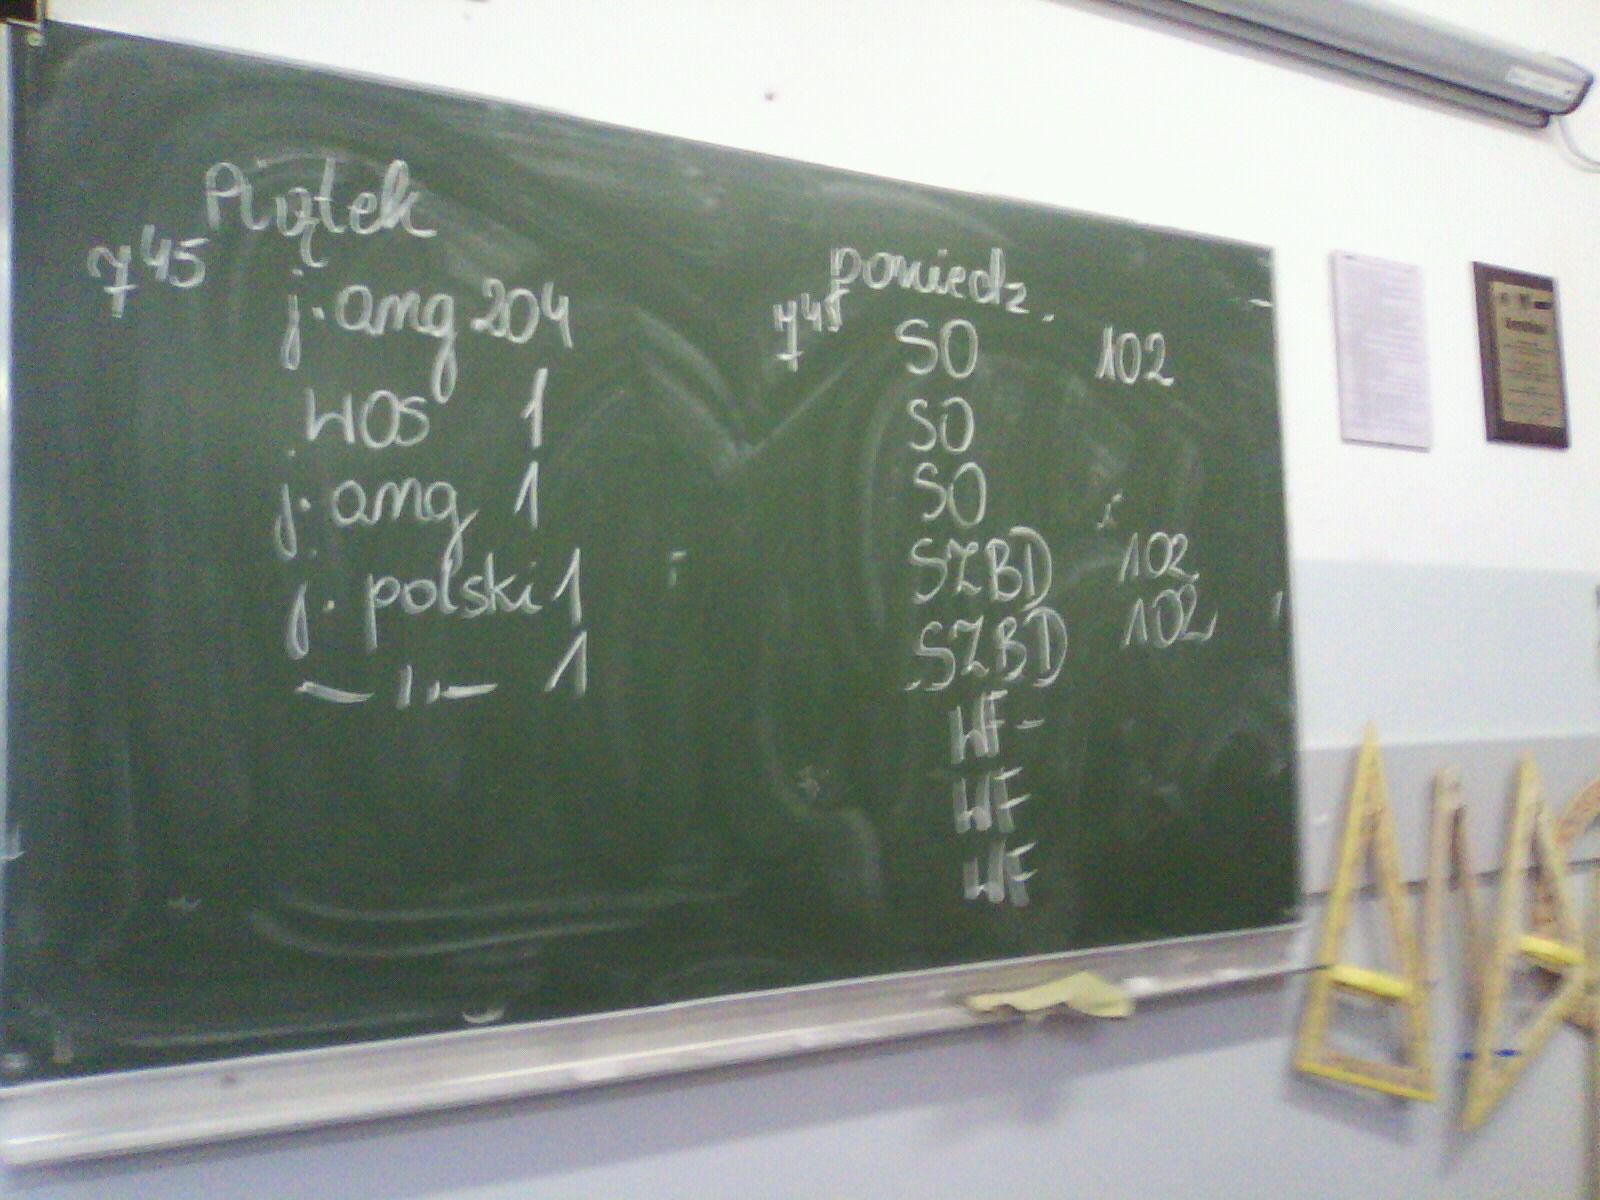 Piątek
7 45 j. ang 204
WOS 1
j. ang 1
j. polski 1
— 1,— 1
poniedz.
7 45 SO 102
SO
SO
SZBD 102
SZBD 102
WF -
WF
WF